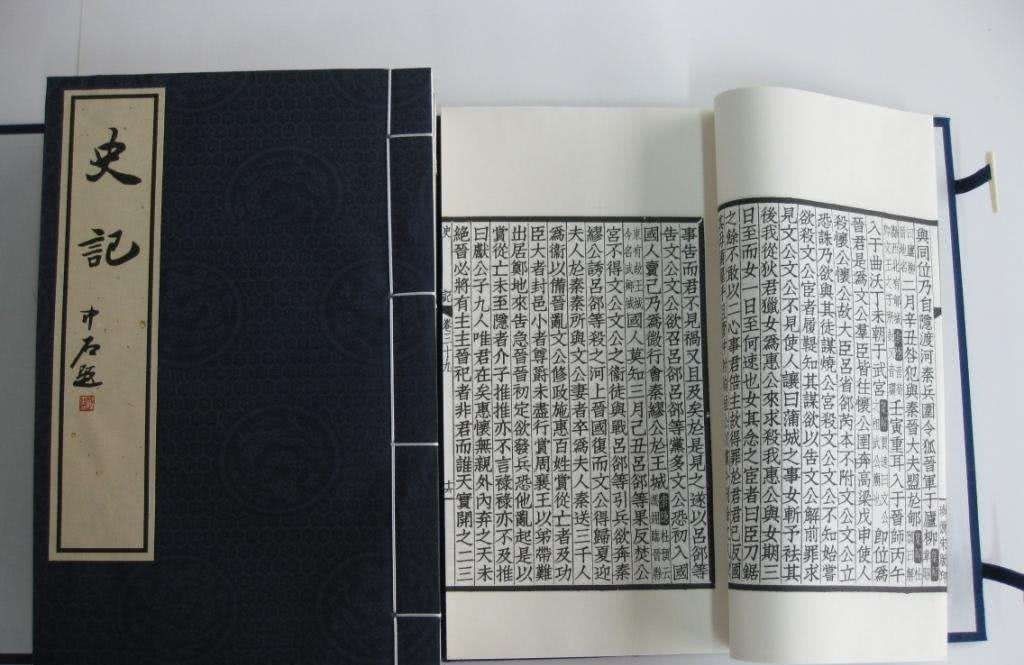 史記
中石題
與同位乃自隱渡河秦兵圍令狐晉軍于廬柳
二月辛丑咎犯與秦晉大夫盟於郇
壬寅重耳入于晉師丙午
入于曲沃丁未朝于武宮 即位爲
晉君是爲文公羣臣皆往懷公圉奔高梁戊申使人
殺懷公懷公故大臣呂省郤芮本不附文公文公立
恐誅乃欲與其徒謀燒公宮殺文公文公不知始嘗
欲殺文公宦者履鞮知其謀欲以告文公解前罪求
見文公文公不見使人讓曰蒲城之事女斬予袪其
後我從狄君獵女爲惠公來求殺我惠公與女期三
日至而女一日至何速也女其念之宦者曰臣刀鋸
之餘不敢以二心事君倍主故得罪於君君已反國
事告而君不見禍又且及矣於是見之遂以呂郤等
告文公文公欲召呂郤呂郤等黨多文公恐初入國
國人賣己乃爲微行會秦繆公於王城
國人莫知三月己丑呂郤等果反焚公
宮不得文公文公之衞徒與戰呂郤等引兵欲奔秦
繆公誘呂郤等殺之河上晉國復而文公得歸夏迎
夫人於秦秦所與文公妻者卒爲夫人秦送三千人
爲衞以備晉亂文公修政施惠百姓賞從亡者及功
臣大者封邑小者尊爵未盡行賞周襄王以弟帶難
出居鄭地來告急晉晉初定欲發兵恐他亂起是以
賞從亡未至隱者介子推推亦不言祿祿亦不及推
曰獻公子九人唯君在矣惠懷無親外內弃之天未
絕晉必將有主主晉祀者非君而誰天實開之二三
史記 卷三十九